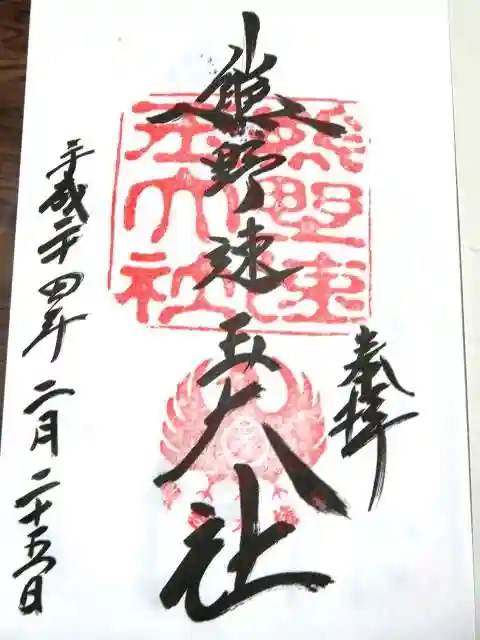 奉拝
熊野速玉大社
熊野速
玉大社
平成二十四年二月二十五日